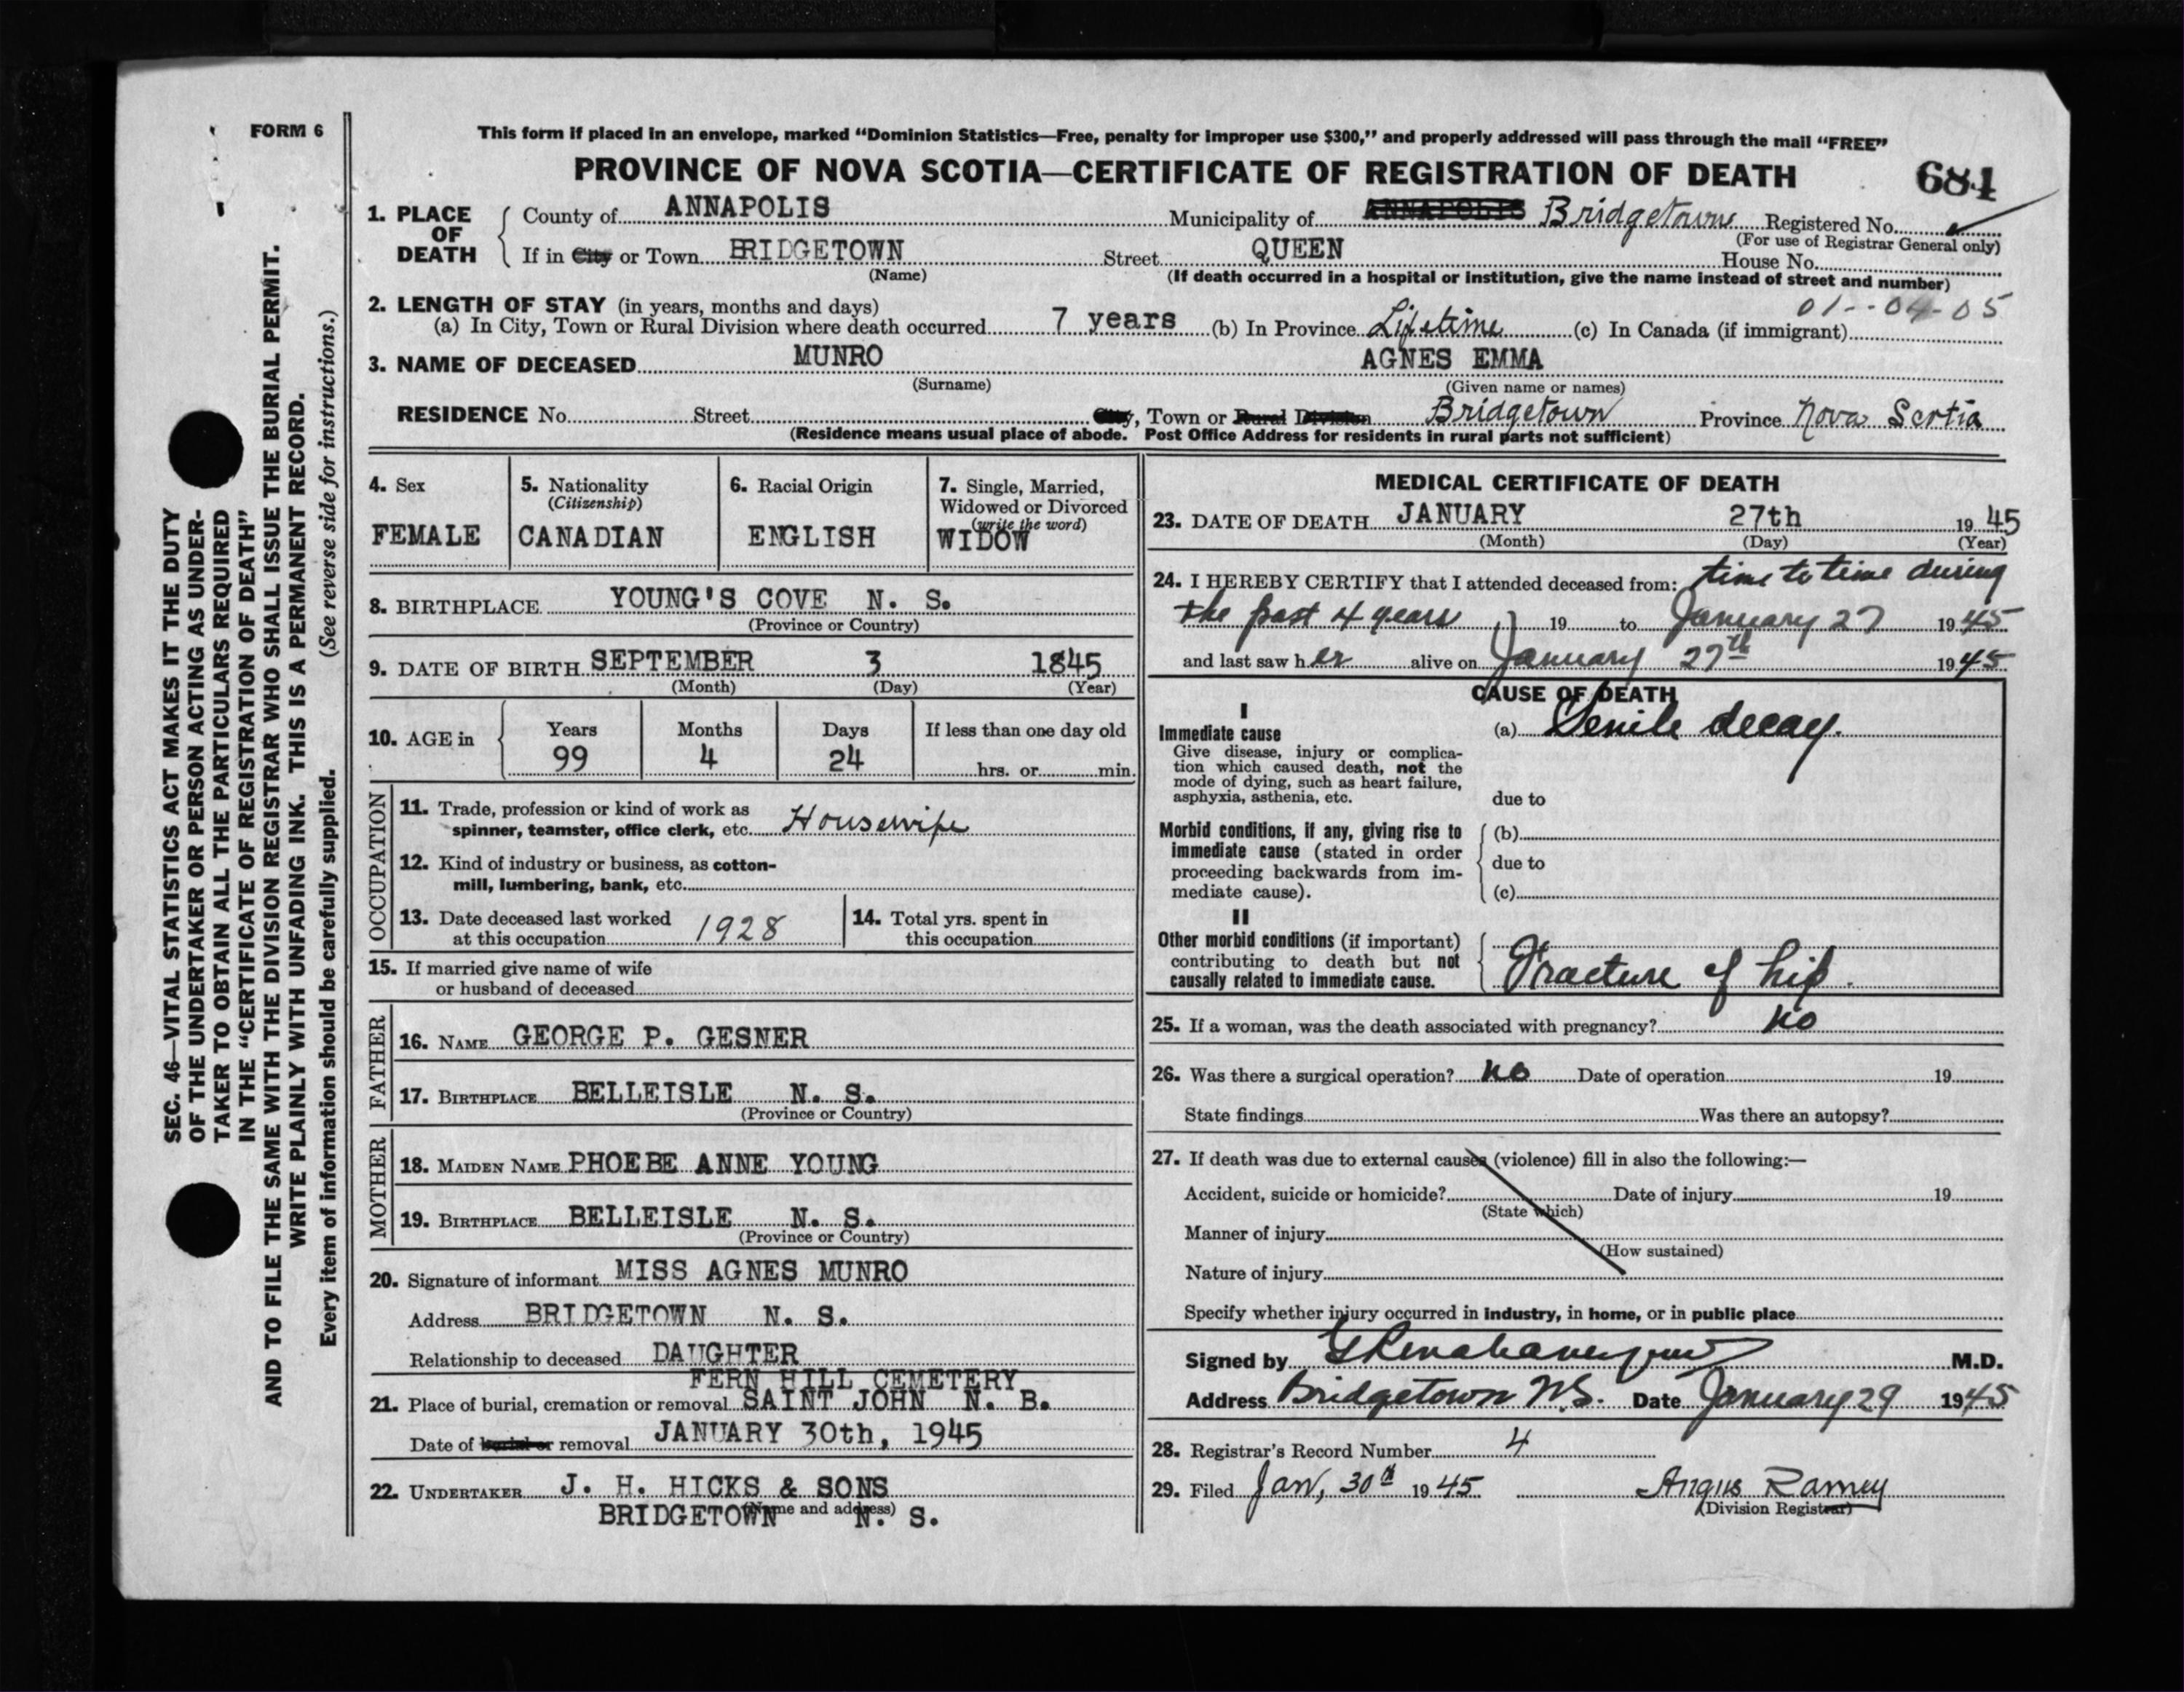 FORM 6
SEC. 46—VITAL STATISTICS ACT MAKES IT THE DUTY
OF THE UNDERTAKER OR PERSON ACTING AS UNDER-
TAKER TO OBTAIN ALL THE PARTICULARS REQUIRED
IN THE "CERTIFICATE OF REGISTRATION OF DEATH"
AND TO FILE THE SAME WITH THE DIVISION REGISTRAR WHO SHALL ISSUE THE BURIAL PERMIT.
WRITE PLAINLY WITH UNFADING INK. THIS IS A PERMANENT RECORD.
Every item of information should be carefully supplied. (See reverse side for instructions.)
This form if placed in an envelope, marked "Dominion Statistics—Free, penalty for improper use $300," and properly addressed will pass through the mail "FREE"
PROVINCE OF NOVA SCOTIA—CERTIFICATE OF REGISTRATION OF DEATH 684
1. PLACE OF DEATH County of ANNAPOLIS Municipality of ANNAPOLIS Bridgetown Registered No.
(For use of Registrar General only)
If in City or Town BRIDGETOWN Street QUEEN House No.
(Name) (If death occurred in a hospital or institution, give the name instead of street and number)
2. LENGTH OF STAY (in years, months and days) 01--04-05
(a) In City, Town or Rural Division where death occurred 7 years (b) In Province Lifetime (c) In Canada (if immigrant)
3. NAME OF DECEASED MUNRO AGNES EMMA
(Surname) (Given name or names)
RESIDENCE No. Street City, Town or Rural Division Bridgetown Province Nova Scotia
(Residence means usual place of abode. Post Office Address for residents in rural parts not sufficient)
4. Sex
FEMALE
5. Nationality
(Citizenship)
CANADIAN
6. Racial Origin
ENGLISH
7. Single, Married,
Widowed or Divorced
(write the word)
WIDOW
8. BIRTHPLACE YOUNG'S COVE N. S.
(Province or Country)
9. DATE OF BIRTH SEPTEMBER 3 1845
(Month) (Day) (Year)
10. AGE in Years Months Days If less than one day old
99 4 24 hrs. or min.
OCCUPATION
11. Trade, profession or kind of work as
spinner, teamster, office clerk, etc. Housewife
12. Kind of industry or business, as cotton-
mill, lumbering, bank, etc.
13. Date deceased last worked
at this occupation 1928
14. Total yrs. spent in
this occupation
15. If married give name of wife
or husband of deceased
FATHER
16. NAME GEORGE P. GESNER
17. BIRTHPLACE BELLEISLE N. S.
(Province or Country)
MOTHER
18. MAIDEN NAME PHOEBE ANNE YOUNG
19. BIRTHPLACE BELLEISLE N. S.
(Province or Country)
20. Signature of informant MISS AGNES MUNRO
Address BRIDGETOWN N. S.
Relationship to deceased DAUGHTER
FERN HILL CEMETERY
21. Place of burial, cremation or removal SAINT JOHN N. B.
Date of burial or removal JANUARY 30th, 1945
22. UNDERTAKER J. H. HICKS & SONS
(Name and address)
BRIDGETOWN N. S.
MEDICAL CERTIFICATE OF DEATH
23. DATE OF DEATH JANUARY 27th 1945
(Month) (Day) (Year)
24. I HEREBY CERTIFY that I attended deceased from: time to time during
the past 4 years 19 to January 27 1945
and last saw her alive on January 27th 1945
CAUSE OF DEATH
I
Immediate cause (a) Senile decay.
Give disease, injury or complica-
tion which caused death, not the
mode of dying, such as heart failure,
asphyxia, asthenia, etc. due to
Morbid conditions, if any, giving rise to (b)
immediate cause (stated in order
proceeding backwards from im- due to
mediate cause). (c)
II
Other morbid conditions (if important)
contributing to death but not
causally related to immediate cause. Fracture of hip.
25. If a woman, was the death associated with pregnancy? no
26. Was there a surgical operation? no Date of operation 19
State findings Was there an autopsy?
27. If death was due to external causes (violence) fill in also the following:—
Accident, suicide or homicide? Date of injury 19
(State which)
Manner of injury
(How sustained)
Nature of injury
Specify whether injury occurred in industry, in home, or in public place
Signed by M.D.
Address Bridgetown N.S. Date January 29 1945
28. Registrar's Record Number 4
29. Filed Jan, 30th 1945 Angus Ramey
(Division Registrar)